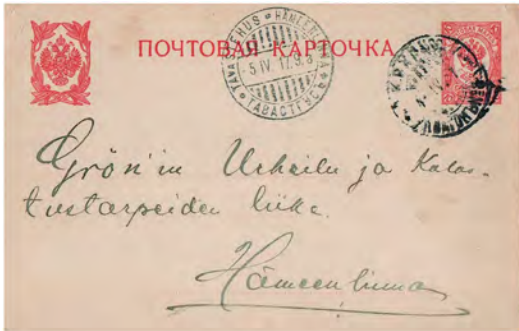 ПОЧТОВАЯ КАРТОЧКА
TAVASTEHUS * HÄMEENLINNA
5 IV. 17. 9. 3
* ТАВАСТГУС *
Grön'in Urheilu ja Kalas-
tustarpeiden liike.
Hämeenlinna